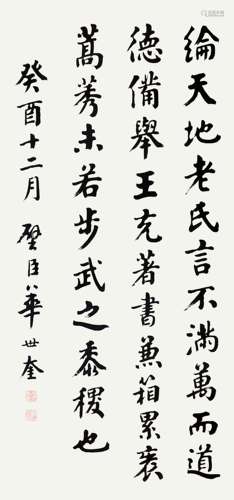 綸天地老氏言不滿萬而道
德備舉王充著書兼箱累袠
蒿莠未若步武之黍稷也
癸酉十二月 璧臣華世奎